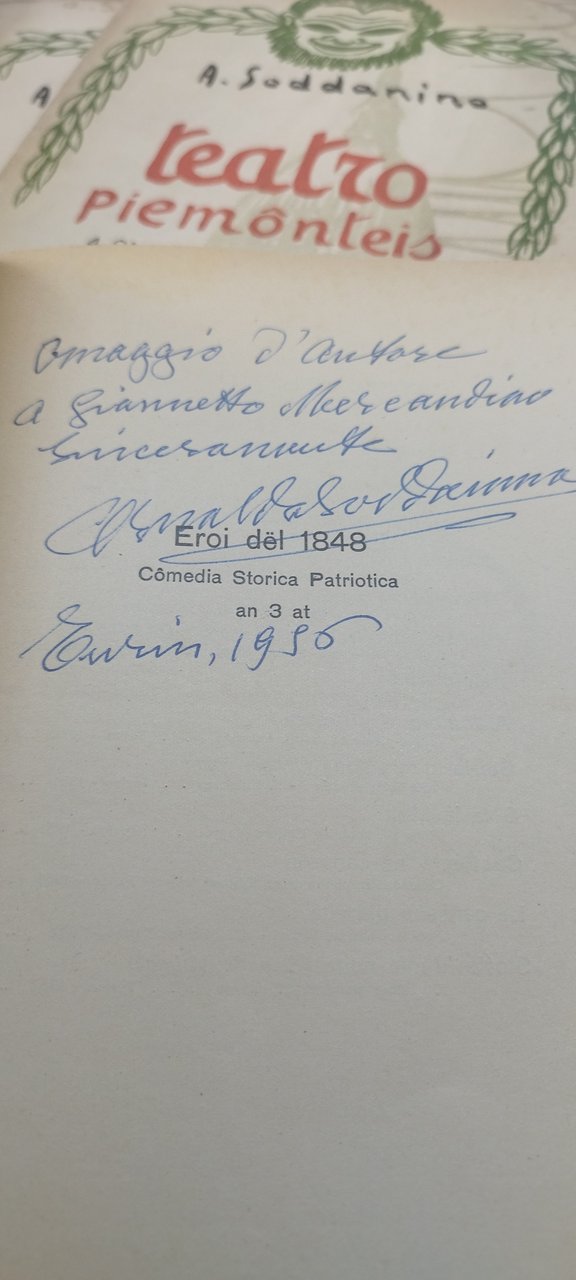 A
A. Soddanino
teatro
Piemônteis
Omaggio d'autore
a Giannetto Mercandino
sinceramente
Eroi dël 1848
Cômedia Storica Patriotica
an 3 at
Turin, 1956